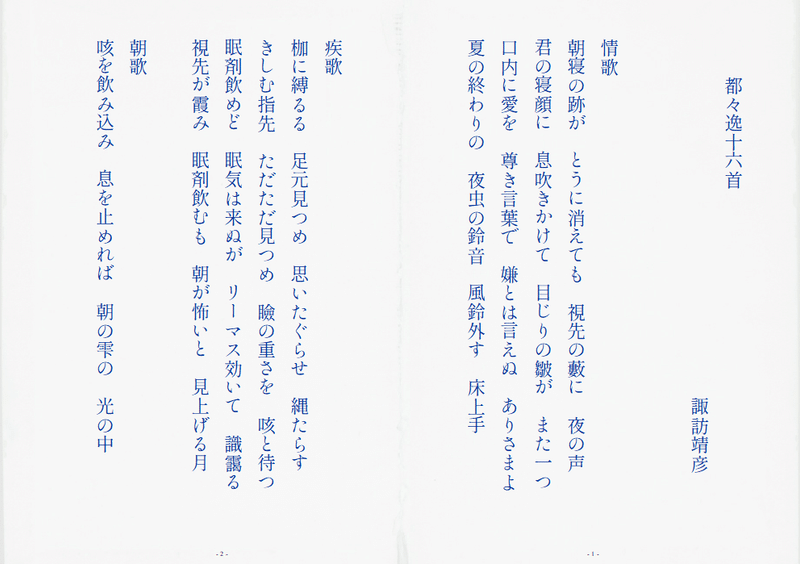 都々逸十六首
諏訪靖彦
情歌
朝寝の跡が　とうに消えても　視先の藪に　夜の声
君の寝顔に　息吹きかけて　目じりの皺が　また一つ
口内に愛を　尊き言葉で　嫌とは言えぬ　ありさまよ
夏の終わりの　夜虫の鈴音　風鈴外す　床上手
- 1 -
疾歌
枷に縛るる　足元見つめ　思いたぐらせ　縄たらす
きしむ指先　ただただ見つめ　瞼の重さを　咳と待つ
眠剤飲めど　眠気は来ぬが　リーマス効いて　識靄る
視先が霞み　眠剤飲むも　朝が怖いと　見上げる月
朝歌
咳を飲み込み　息を止めれば　朝の雫の　光の中
- 2 -